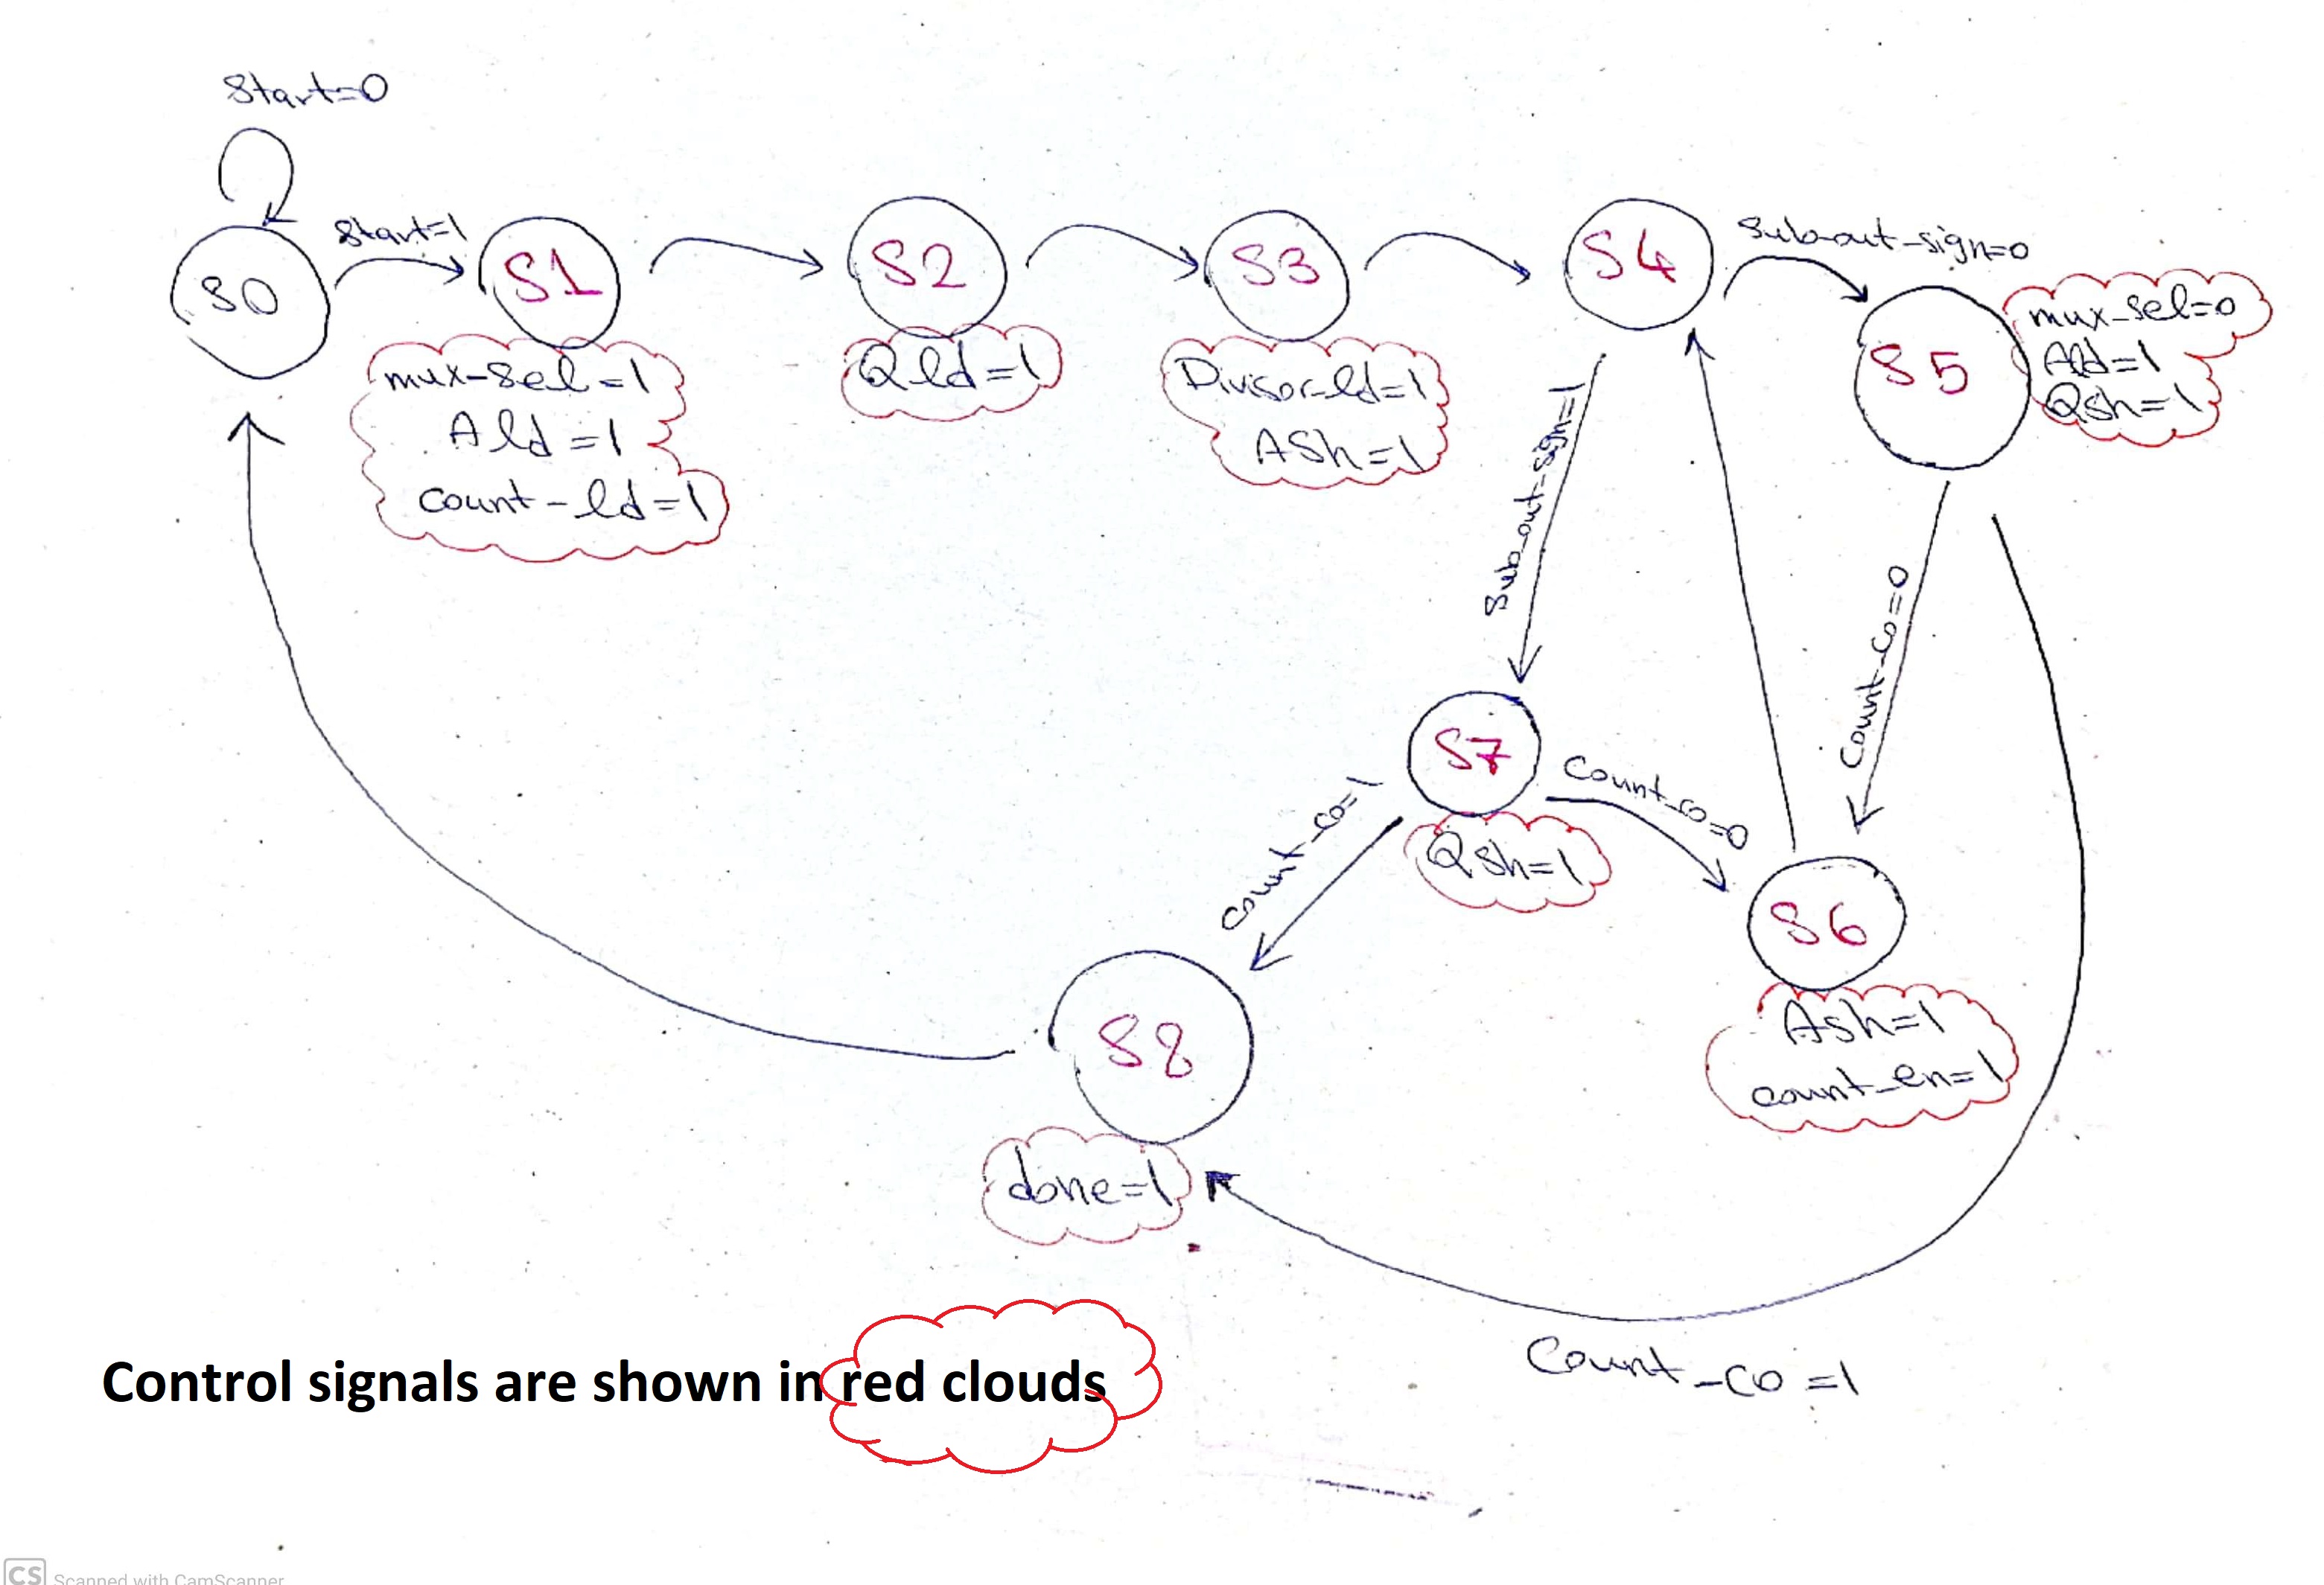 Start=0
S0
Start=1
S1
mux-sel=1
Ald=1
count-ld=1
S2
Qld=1
S3
Divisor-ld=1
ASh=1
S4
Sub-out-sign=0
S5
mux-sel=0
Ald=1
Qsh=1
Sub-out-sign=1
Count-co=0
S7
Qsh=1
Count-co=0
Count-co=1
S6
Ash=1
count-en=1
S8
done=1
Count-co=1
Control signals are shown in red clouds
CS Scanned with CamScanner